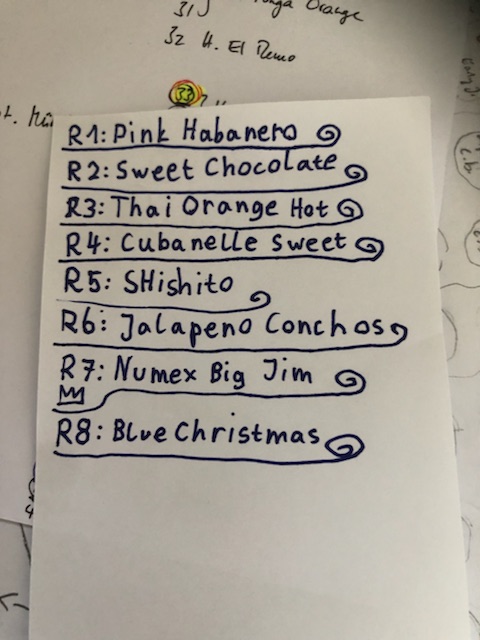 Orange
32 H. El Remo
33
R1: Pink Habanero
R2: Sweet Chocolate
R3: Thai Orange Hot
R4: Cubanelle Sweet
R5: SHishito
R6: Jalapeno Conchos
R7: Numex Big Jim
R8: Blue Christmas